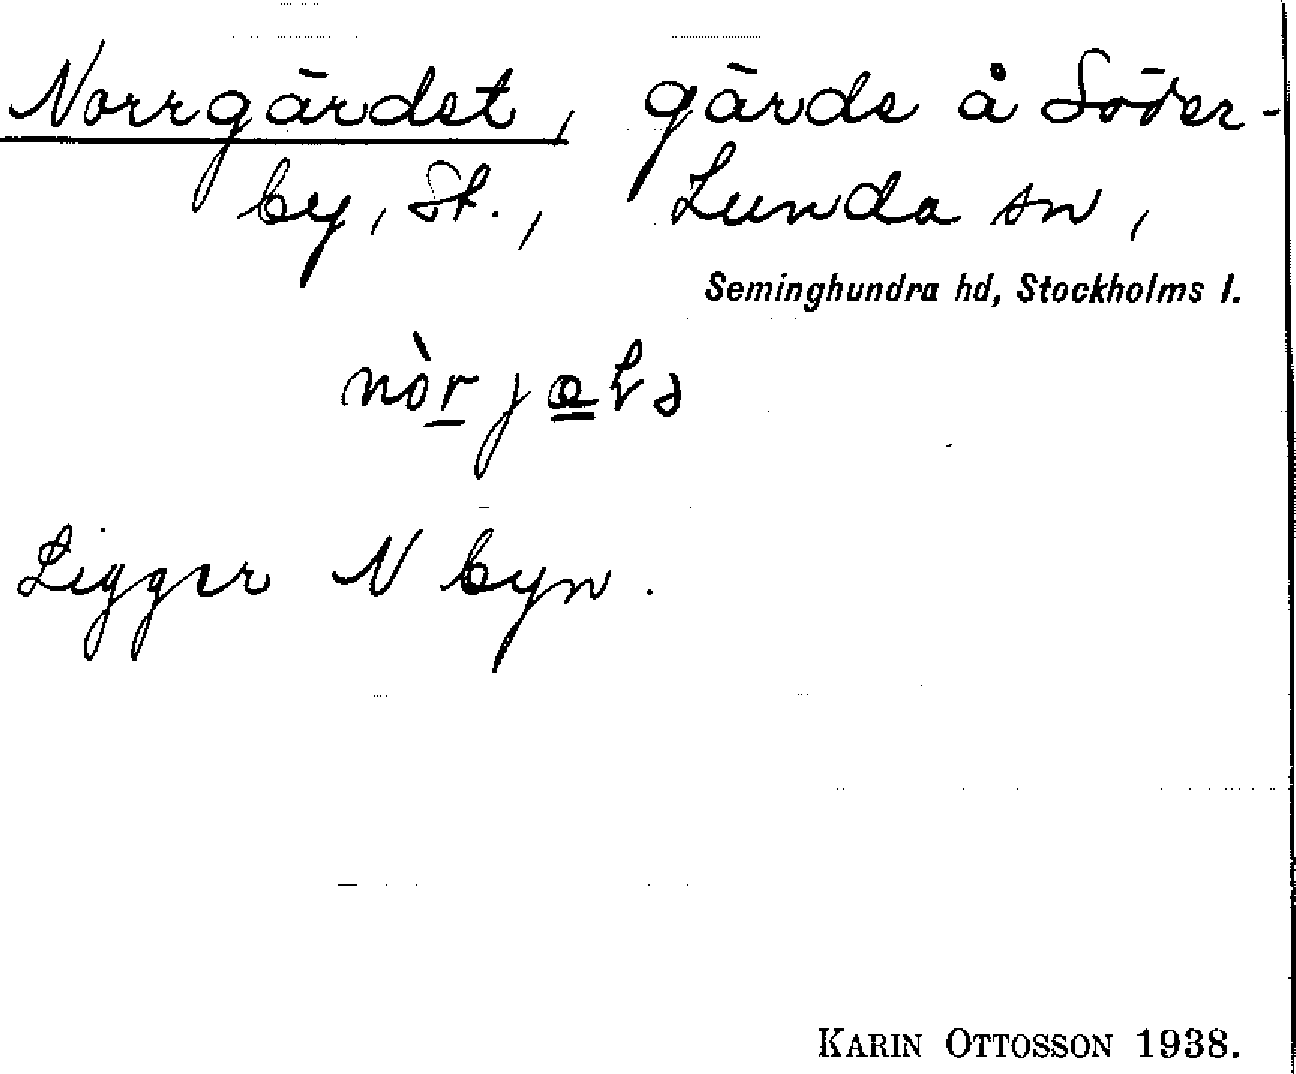 Norrgärdet, gärde å Söder-
by, St., Lunda sn,
Seminghundra hd, Stockholms l.
Ligger N byn.
KARIN OTTOSSON 1938.